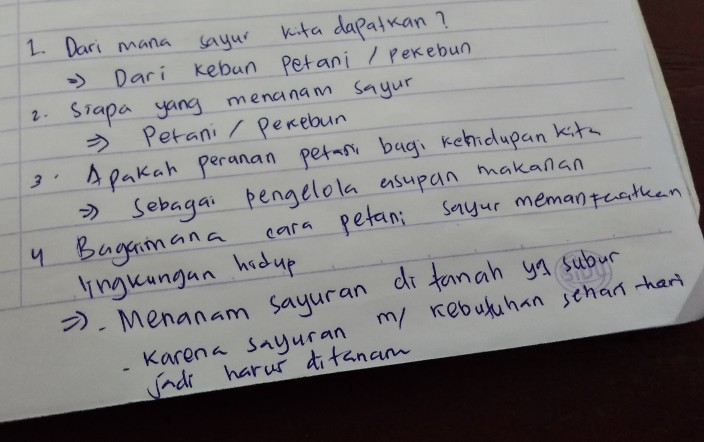 1. Dari mana sayur kita dapatkan?
=> Dari kebun petani / pekebun
2. Siapa yang menanam sayur
=> Petani / Pekebun
3. Apakah peranan petani bagi kehidupan kita
=> Sebagai pengelola asupan makanan
4 Bagaimana cara petani sayur memanfaatkan
lingkungan hidup
=> - Menanam sayuran di tanah yg subur
- Karena sayuran m/ kebutuhan sehari-hari
jadi harus ditanam